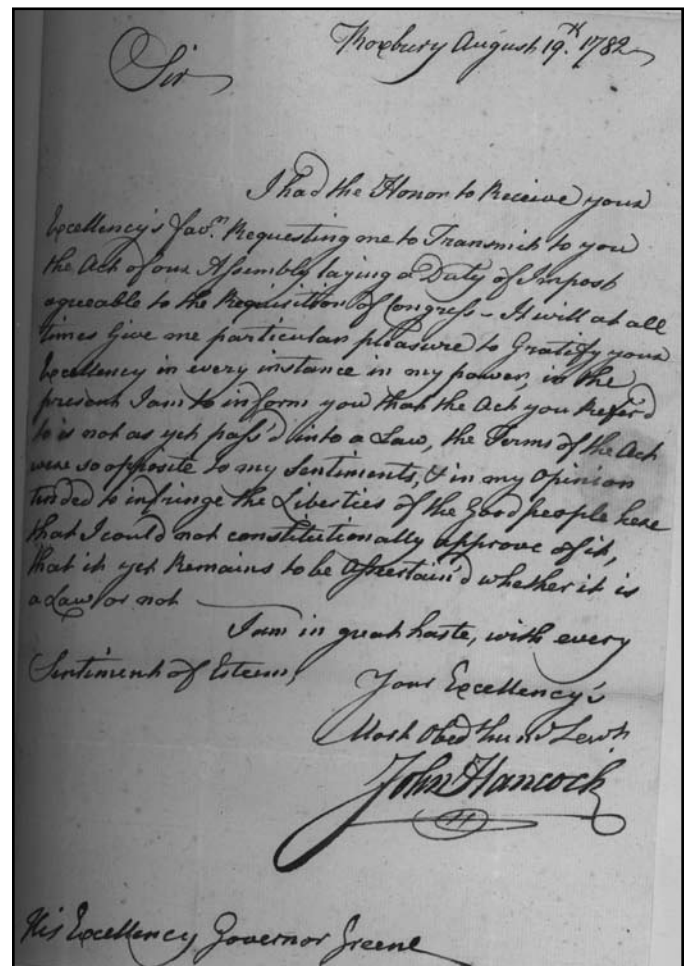 Roxbury August 19.th 1782
Sir
I had the Honor to Receive your
Excellency's fav.r Requesting me to Transmit to you
the Act of our Assembly laying a Duty of Impost
agreeable to the Requisition of Congress - It will at all
times Give me particular pleasure to Gratify your
Excellency in every instance in my power, in the
present I am to inform you that the Act you Refer'd
to is not as yet pass'd into a Law, the Terms of the Act
were so opposite to my Sentiments, & in my Opinion
tended to infringe the Liberties of the Good people here
that I could not constitutionally approve of it,
that it yet Remains to be Ascertain'd whether it is
a Law or not
I am in great haste, with every
Sentiment of Esteem,
Your Excellency's
Most Obed hum Serv.t
John Hancock
His Excellency Governor Greene